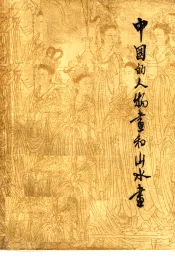 中国的人物画和山水画